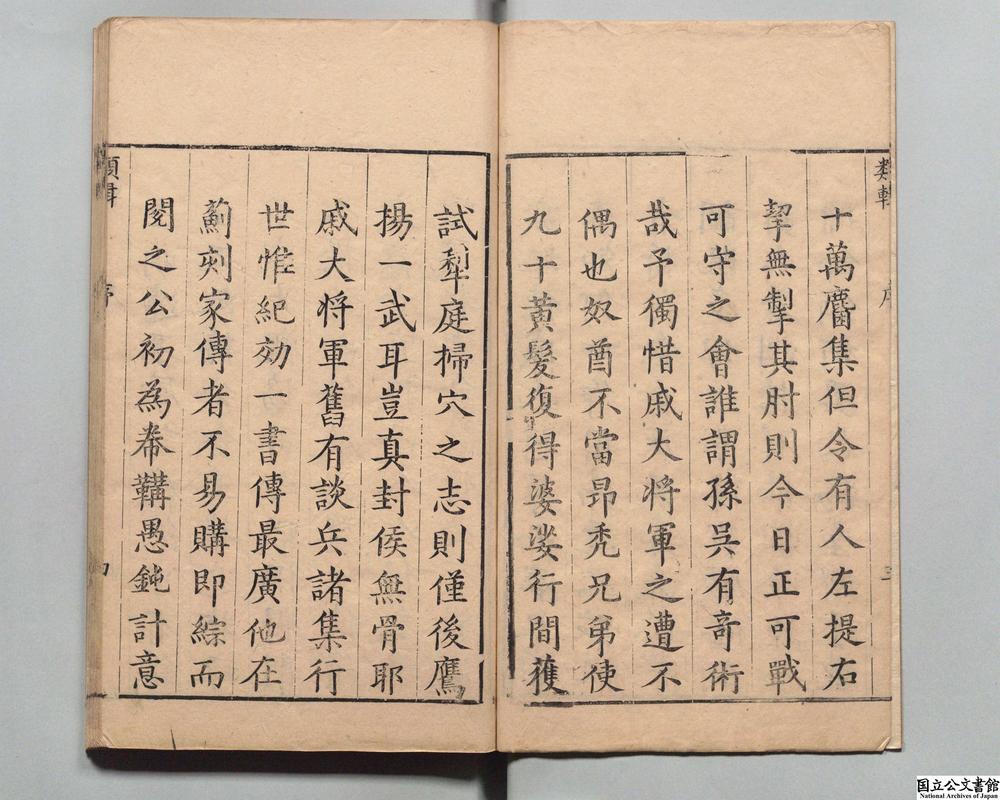 十萬麕集但令有人左提右
挈無掣其肘則今日正可戰
可守之會誰謂孫吳有奇術
哉予獨惜戚大将軍之遭不
偶也奴酋不當昂禿兄弟使
九十黃髮復得婆娑行間獲
試犁庭掃穴之志則僅後鷹
揚一武耳豈真封侯無骨耶
戚大将軍舊有談兵諸集行
世惟紀効一書傳最廣他在
薊刻家傳者不易購即綜而
閱之公初為帣鞲愚鈍計意
類輯
序
国立公文書館
National Archives of Japan